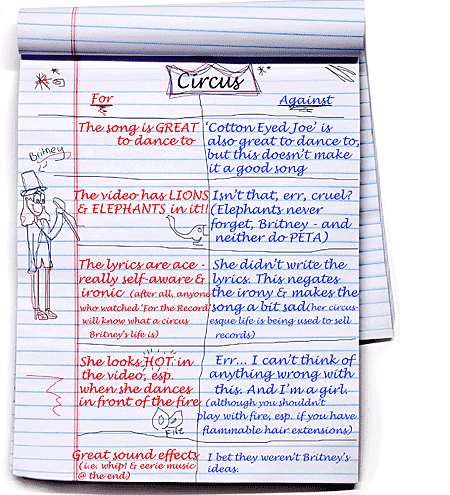 Circus
For
Against
The song is GREAT
to dance to
'Cotton Eyed Joe' is
also great to dance to,
but this doesn't make
it a good song
Britney
The video has LIONS
& ELEPHANTS in it!!
Isn't that, err, cruel?
(Elephants never
forget, Britney - and
neither do PETA)
The lyrics are ace -
really self-aware &
ironic (after all, anyone
who watched 'For the Record'
will know what a circus
Britney's life is)
She didn't write the
lyrics. This negates
the irony & makes the
song a bit sad (her circus-
esque life is being used to sell
records)
She looks HOT in
the video, esp.
when she dances
in front of the fire
Fire
Err... I can't think of
anything wrong with
this. And I'm a girl.
(although you shouldn't
play with fire, esp. if you have
flammable hair extensions)
Great sound effects
(i.e. whip! & eerie music
@ the end)
I bet they weren't Britney's
ideas.